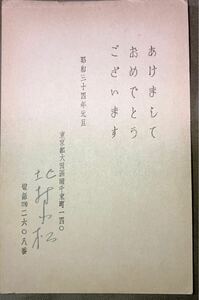 あけまして
おめでとう
ございます
昭和三十四年元旦
東京都大田区調布千束町一四〇
北村小松
電話（78）二六〇八番